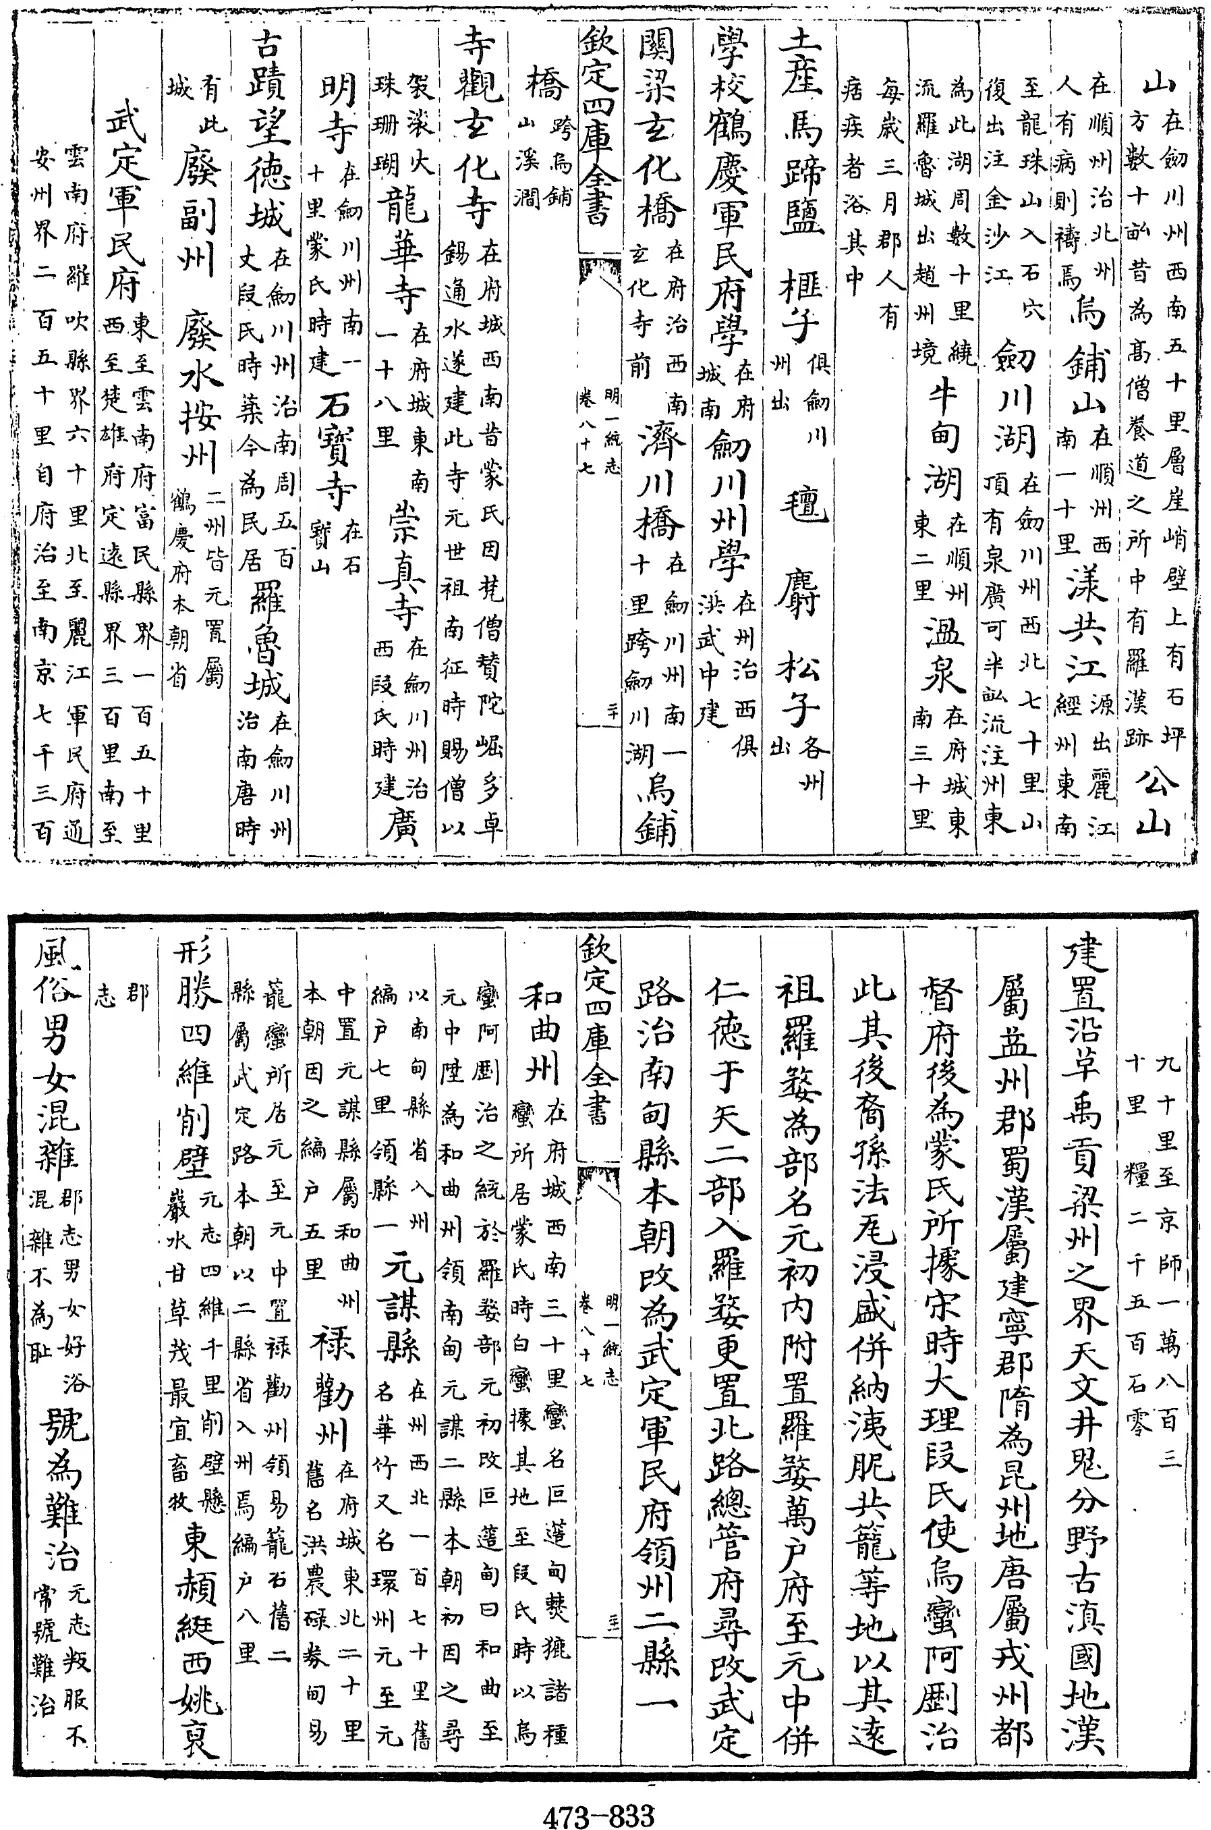 山在劒川州西南五十里層崖峭壁上有石坪方數十畝昔為高僧養道之所中有羅漢跡公山
在順州治北州人有病則禱焉烏鋪山在順州西南一十里漾共江源出麗江經州東南
至龍珠山入石穴復出注金沙江劒川湖在劒川州西北七十里山頂有泉廣可半畝流注州東
為此湖周數十里繞流羅魯城出趙州境牛甸湖在順州東二里溫泉在府城東南三十里
每歲三月郡人有痞疾者浴其中
土產馬蹄鹽 榧子俱劒川州出 氊 麝 松子各州出
學校鶴慶軍民府學在府城南劒川州學在州治西俱洪武中建
關梁玄化橋在府治西南玄化寺前濟川橋在劒川州南一十里跨劒川湖烏鋪
欽定四庫全書 明一統志 卷八十七 三十
橋跨烏鋪山溪澗
寺觀玄化寺在府城西南昔蒙氏因梵僧贊陀崛多卓錫通水遂建此寺元世祖南征時賜僧以
袈裟火珠珊瑚龍華寺在府城東南一十八里崇真寺在劒川州治西段氏時建廣
明寺在劒川州南一十里蒙氏時建石寶寺在石寶山
古蹟望徳城在劒川州治南周五百丈段氏時築今為民居羅魯城在劒川州治南唐時
有此城廢副州 廢水按州二州皆元置屬鶴慶府本朝省
武定軍民府東至雲南府富民縣界一百五十里西至楚雄府定遠縣界三百里南至
雲南府羅吹縣界六十里北至麗江軍民府通安州界二百五十里自府治至南京七千三百
九十里至京師一萬八百三十里 糧二千五百石零
建置沿革禹貢梁州之界天文井鬼分野古滇國地漢
屬益州郡蜀漢屬建寧郡隋為昆州地唐屬戎州都
督府後為蒙氏所據宋時大理段氏使烏蠻阿㔉治
此其後裔孫法瓦浸盛併納洟胒共籠等地以其遠
祖羅婺為部名元初內附置羅婺萬户府至元中併
仁徳于矢二部入羅婺更置北路總管府尋改武定
路治南甸縣本朝改為武定軍民府領州二縣一
欽定四庫全書 明一統志 卷八十七 三十一
和曲州在府城西南三十里蠻名叵簉甸僰㹮諸種蠻所居蒙氏時白蠻據其地至段氏時以烏
蠻阿㔉治之統於羅婺部元初改叵簉甸曰和曲至元中陞為和曲州領南甸元謀二縣本朝初因之尋
以南甸縣省入州編户七里領縣一元謀縣在州西北一百七十里舊名華竹又名環州元至元
中置元謀縣屬和曲州本朝因之編户五里祿勸州在府城東北二十里舊名洪農碌券甸易
籠蠻所居元至元中置祿勸州領易籠石舊二縣屬武定路本朝以二縣省入州焉編户八里
形勝四維削壁元志四維千里削壁懸巖水甘草茂最宜畜牧東頫綎西姚裒
郡志
風俗男女混雜郡志男女好浴混雜不為恥號為難治元志叛服不常號難治
473-833